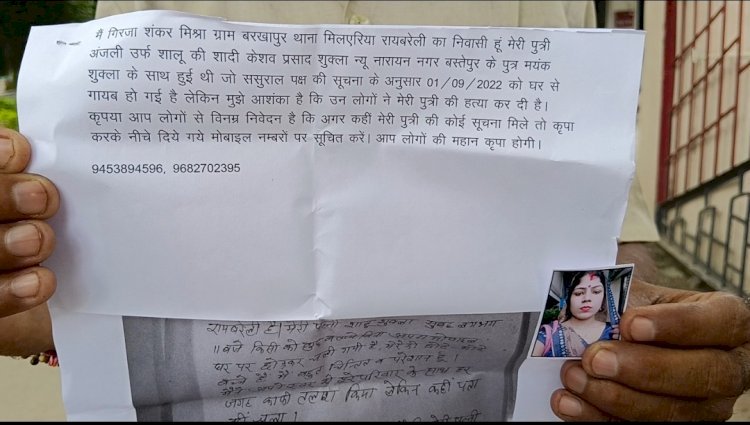 मै गिरजा शंकर मिश्रा ग्राम बरखापुर थाना मिलएरिया रायबरेली का निवासी हूं मेरी पुत्री
अंजली उर्फ शालू की शादी केशव प्रसाद शुक्ला न्यू नारायन नगर बस्तेपुर के पुत्र मयंक
शुक्ला के साथ हुई थी जो ससुराल पक्ष की सूचना के अनुसार 01/09/2022 को घर से
गायब हो गई है लेकिन मुझे आशंका है कि उन लोगों ने मेरी पुत्री की हत्या कर दी है।
कृपया आप लोगों से विनम्र निवेदन है कि अगर कहीं मेरी पुत्री की कोई सूचना मिले तो कृपा
करके नीचे दिये गये मोबाइल नम्बरों पर सूचित करें। आप लोगों की महान कृपा होगी।
9453894596, 9682702395
रायबरेली है। मेरी पत्नी
11 बजे किसी को
घर पर छोड़कर चली गयी है
बच्चे है मै बहुत चिन्तित व परेशान है।
परिवार के साथ हर
जगह काफी तलाश किया लेकिन कहीं पता
नहीं चला।